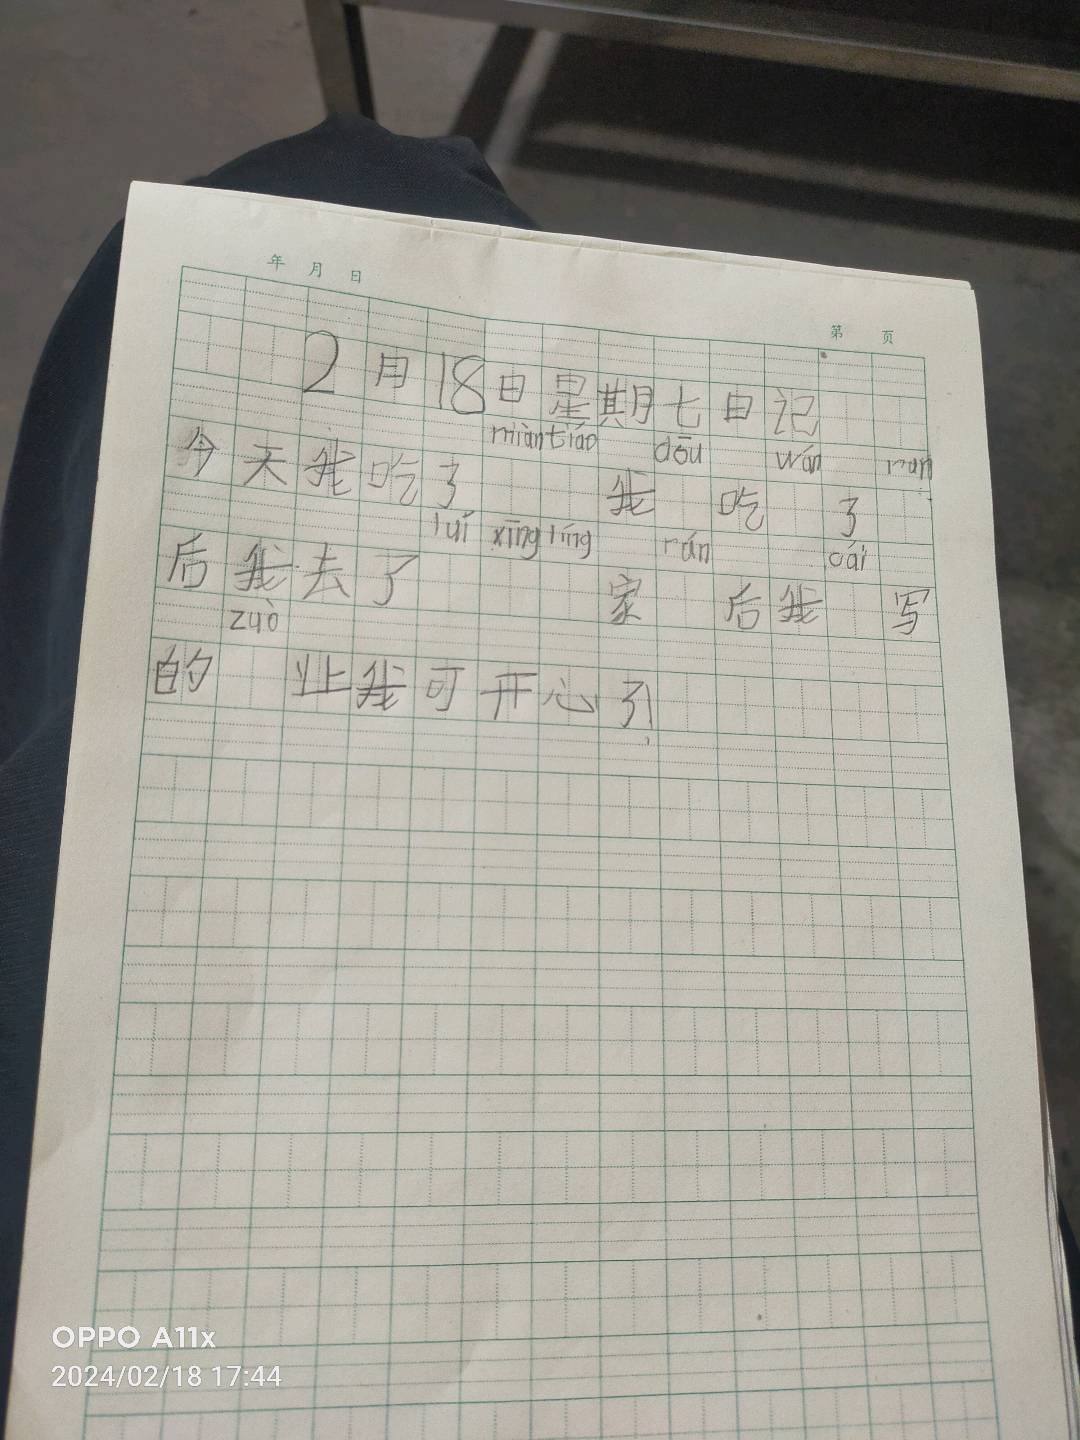 年 月 日
第 页
2月18日星期七日记
miàntiáo dōu wán ran
今天我吃了 我 吃 了
luí xīnglíng rán cái
后我去了 家 后我 写
zuò
的 业我可开心了!
OPPO A11x
2024/02/18 17:44